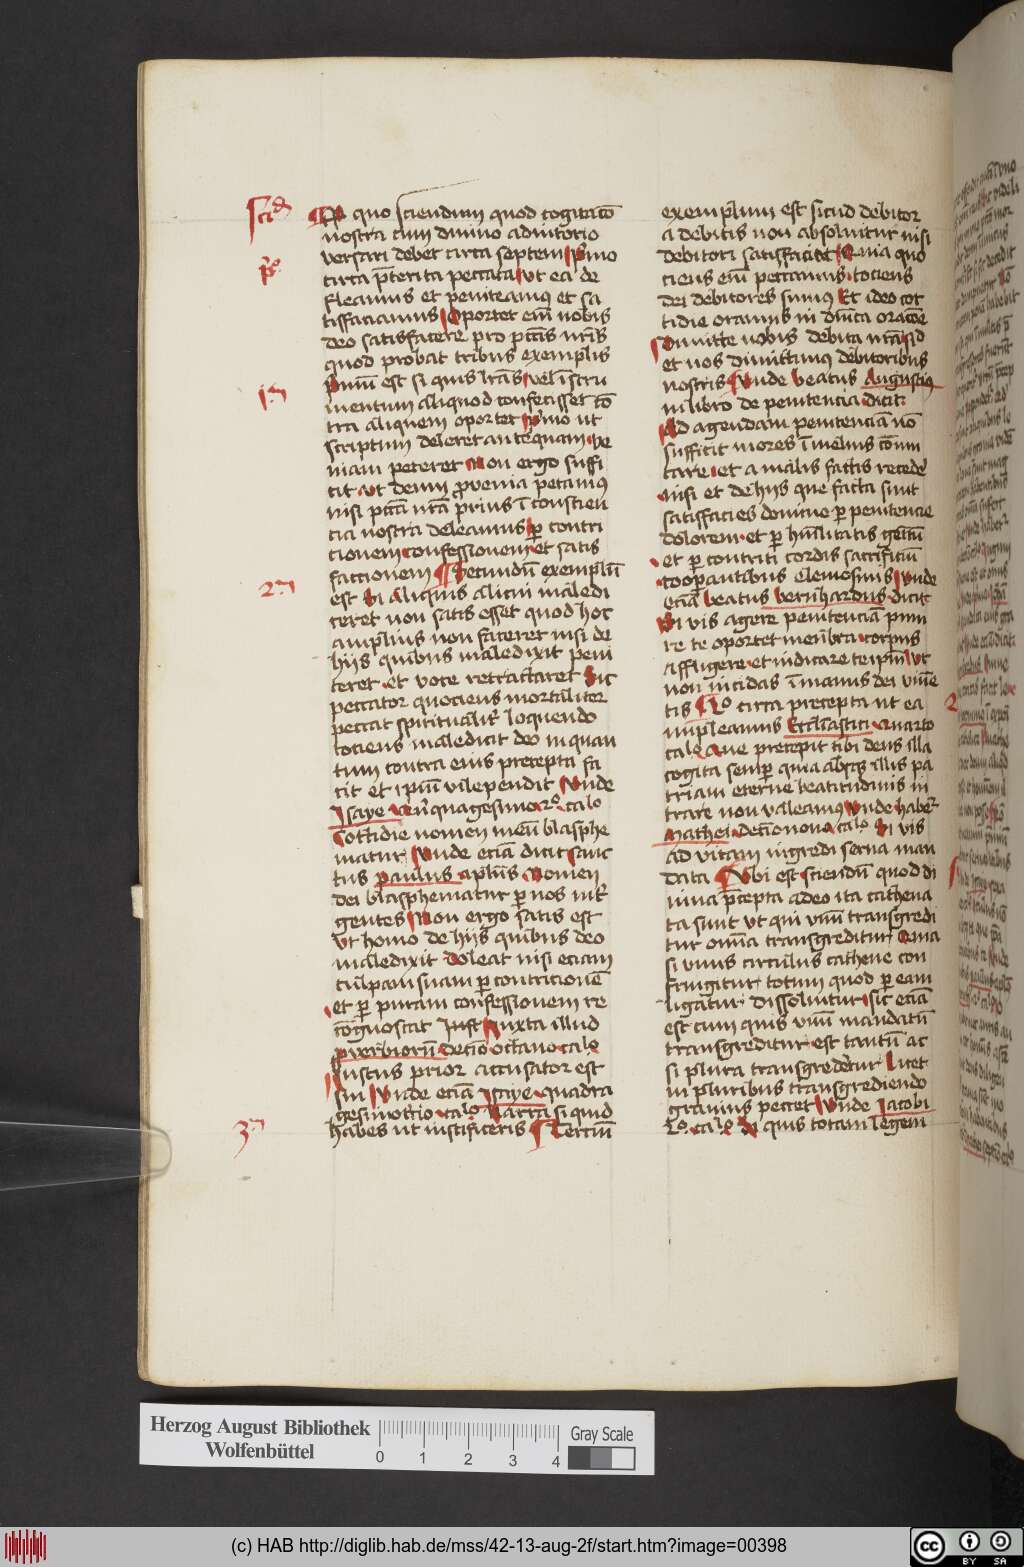 scid
De quo sciendum quod cogitacō
nostra cum diuino adiutorio
versari debet circa septem pͥmo
pͦ
circa p̄terita peccata ut ea de
fleamus et peniteamꝰ et sa
tisfaciamus Oportet em̄ nobis
deo satisfacere pro pctīs nrīs
quod probat tribus exemplis
1m
Primū est si quis lrās vel īstru
mentum aliquod confecisset cō
tra aliquem oportet pͥmo ut
scriptum deleret antequam ve
niam peteret Non ergo suffi
cit ut deum pro venia petamꝰ
nisi pctā nrā prius ī conscien
cia nostra deleamus ꝑ contri
cionem confessionem et satis
faccionem Secundū exemplū
2m
est Si aliquis alicui maledi
ceret non satis esset quod hoc
amplius non faceret nisi de
hijs quibus maledixit peni
teret et voce retractaret Sic
peccator quociens mortaliter
peccat spiritualitͬ loquendo
tociens maledicit deo in quan
tum contra eius precepta fa
cit et ipm̄ vilependit Unde
Isaye quinquagesimo 2o calo
Cottidie nomen meū blasphe
matur Unde eciā dicit sanc
tus paulus aplūs Nomen
dei blasphematur ꝑ nos intͬ
gentes Non ergo satis est
ut homo de hijs quibus deo
maledixit doleat nisi eciam
culpam suam ꝑ contricionē
et ꝑ puram confessionem re
cognoscat Iust iuxta illud
prouerbiorū decīo octauo calo
Iustus prior accusator est
sui Unde eciā Isaye quadra
gesimo tercio calo Narra si quid
3m
habes ut iustificeris Terciū
exemplum est sicud debitor
a debitis non absoluitur nisi
debitori satisfaciat Quia quo
ciens em̄ peccamus tociens
dei debitores sumꝰ Et ideo cot
tidie oramus in dnīca oracōe
Dimitte nobis debita nrā sicd
et nos dimittimꝰ debitoribus
nostris Unde beatus Augustinꝰ
in libro de penitencia dicit
Ad agendam penitenciā nō
sufficit mores ī melius cōmu
tare et a malis factis recedē
nisi et de hijs que facta sunt
satisfacies domino ꝑ penitencie
dolorem et ꝑ hūilitatis gemitū
et ꝑ contriti cordis sacrificiū
cooperantibus elemosinis Unde
eciā beatus bernhardus dicit
Si vis agere penitenciā puni
re te oportet membra corpus
affligere et iudicare te ipm̄ Ut
non incidas ī manus dei viuē
tis 2o circa precepta ut ea
impleamus Ecclīastici quarto
calo Que precepit tibi deus illa
cogita semꝑ quia absqꝫ illis pa
triam eterne beatitudinis in
trare non valeamꝰ Unde habetͬ
Mathei decīonono calo Si vis
ad vitam ingredi serua man
data Ubi est sciendū quod di
uina p̄cepta adeo ita cathena
ta sunt ut qui vnū transgredi
tur omīa transgreditur Quia
si vnus circulus cathene con
fringitur totum quod ꝑ eam
ligatur dissoluitur sic eciā
est cum quis vnū mandatū
transgreditur est tantū ac
si plura transgrederetur Licet
in pluribus transgrediendo
grauius peccet Unde Iacobi
2o calo Si quis totam legem
Herzog August Bibliothek
Wolfenbüttel
0 1 2 3 4
Gray Scale
(c) HAB http://diglib.hab.de/mss/42-13-aug-2f/start.htm?image=00398
cc BY SA